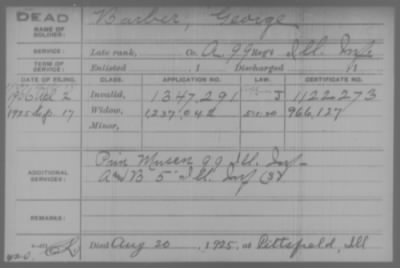 DEAD
NAME OF SOLDIER: Barber, George
SERVICE: Late rank, Co. A, 99 Reg't Ill. Inf.
TERM OF SERVICE: Enlisted 1 Discharged 1
DATE OF FILING. CLASS. APPLICATION NO. LAW. CERTIFICATE NO.
2 Invalid, 1347,291 J 1122,273
1925 Sep. 17 Widow, 1237,042 966,127
Minor,
ADDITIONAL SERVICES: 99 Ill. Inf
B 5" Ill. Inf
REMARKS:
Died Aug 20, 1925, at Pittsfield, Ill